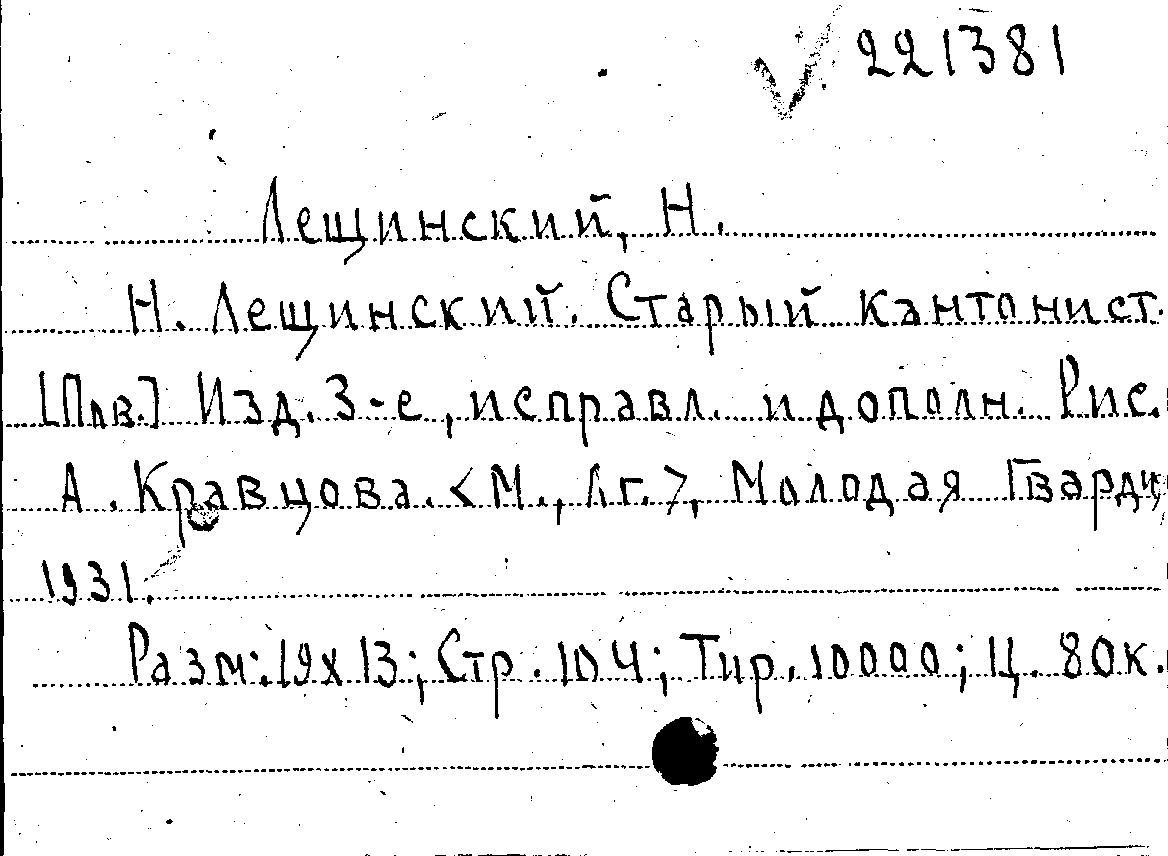 221381
Лещинский, Н.
Н. Лещинский. Старый кантонист.
[Пов.] Изд. 3-е, исправл. и дополн. Рис.
А. Кравцова. <М., Лг.>, Молодая Гварди
1931.
Разм: 19х13; Стр. 104; Тир. 10000; Ц. 80к.